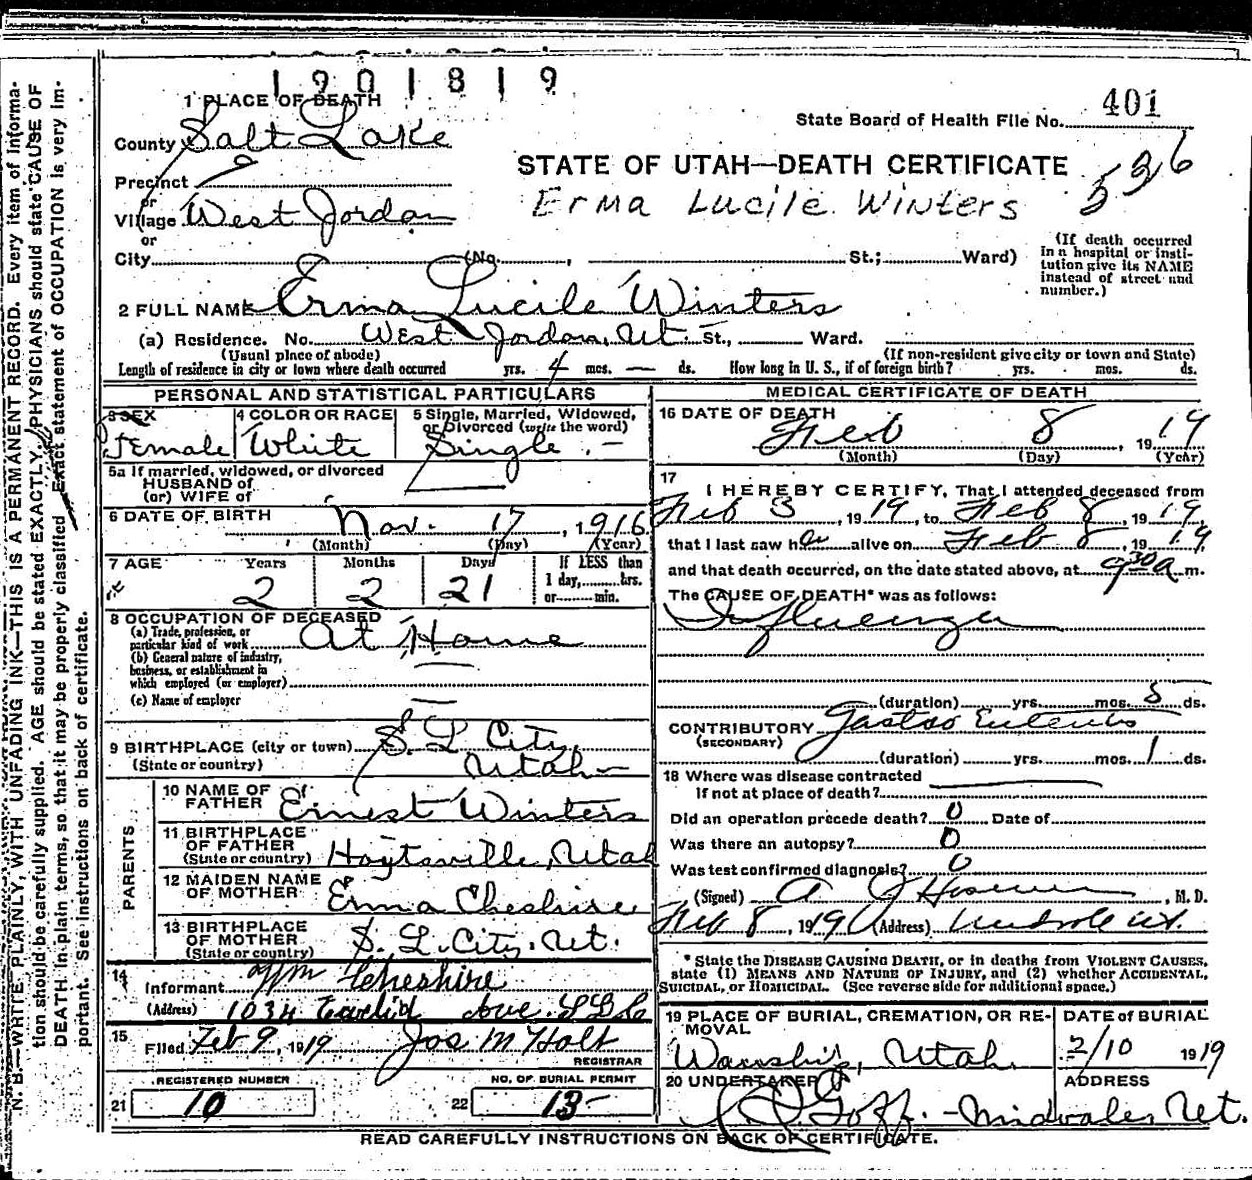 1901819
1 PLACE OF DEATH
State Board of Health File No. 401
County Salt Lake
STATE OF UTAH—DEATH CERTIFICATE
Precinct
or
Village West Jordan
Erma Lucile Winters
or
City (No. , St.; Ward)
(If death occurred in a hospital or institution give its NAME instead of street and number.)
2 FULL NAME Erma Lucile Winters
(a) Residence. No. West Jordan, Ut. St., Ward.
(Usual place of abode) (If non-resident give city or town and State)
Length of residence in city or town where death occurred yrs. 4 mos. — ds. How long in U. S., if of foreign birth? yrs. mos. ds.
PERSONAL AND STATISTICAL PARTICULARS
3 SEX
Female
4 COLOR OR RACE
White
5 Single, Married, Widowed, or Divorced (write the word)
Single
5a If married, widowed, or divorced
HUSBAND of
(or) WIFE of
6 DATE OF BIRTH
Nov. 17, 1916
(Month) (Day) (Year)
7 AGE Years Months Days
2 2 21
If LESS than
1 day, hrs.
or min.
8 OCCUPATION OF DECEASED
(a) Trade, profession, or
particular kind of work At Home
(b) General nature of industry,
business, or establishment in
which employed (or employer)
(c) Name of employer
9 BIRTHPLACE (city or town) S. L. City,
(State or country) Utah
PARENTS
10 NAME OF
FATHER Ernest Winters
11 BIRTHPLACE
OF FATHER
(State or country) Hoytsville, Utah
12 MAIDEN NAME
OF MOTHER Erma Cheshire
13 BIRTHPLACE
OF MOTHER
(State or country) S. L. City. Ut.
14
Informant Wm Cheshire
(Address) 1034 Euclid Ave. SLC
15
Filed Feb 9, 1919 Jos M Holt
REGISTRAR
REGISTERED NUMBER
21 10
NO. OF BURIAL PERMIT
22 13-
MEDICAL CERTIFICATE OF DEATH
16 DATE OF DEATH
Feb 8, 1919
(Month) (Day) (Year)
17
I HEREBY CERTIFY, That I attended deceased from
Feb 3, 1919, to Feb 8, 1919,
that I last saw her alive on Feb 8, 1919,
and that death occurred, on the date stated above, at 9 30 a m.
The CAUSE OF DEATH* was as follows:
Influenza
(duration) yrs. mos. 5 ds.
CONTRIBUTORY Gastro Enteritis
(SECONDARY)
(duration) yrs. mos. 1 ds.
18 Where was disease contracted
If not at place of death?
Did an operation precede death? 0 Date of
Was there an autopsy? 0
Was test confirmed diagnosis? 0
(Signed) , M. D.
Feb 8, 1919 (Address) Ut.
* State the DISEASE CAUSING DEATH, or in deaths from VIOLENT CAUSES,
state (1) MEANS AND NATURE OF INJURY, and (2) whether ACCIDENTAL,
SUICIDAL, or HOMICIDAL. (See reverse side for additional space.)
19 PLACE OF BURIAL, CREMATION, OR RE-
MOVAL
Wanship, Utah
DATE of BURIAL
2/10 1919
20 UNDERTAKER
Goff.
ADDRESS
Midvale, Ut.
READ CAREFULLY INSTRUCTIONS ON BACK OF CERTIFICATE.
N. B.—WRITE PLAINLY, WITH UNFADING INK—THIS IS A PERMANENT RECORD. Every item of informa-
tion should be carefully supplied. AGE should be stated EXACTLY. PHYSICIANS should state CAUSE OF
DEATH in plain terms, so that it may be properly classified. Exact statement of OCCUPATION is very im-
portant. See instructions on back of certificate.